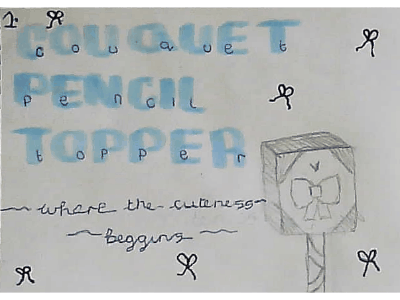 1.
COUQUET
couquet
PENCIL
pencil
TOPPER
topper
~ where the cuteness ~
~ beggins ~